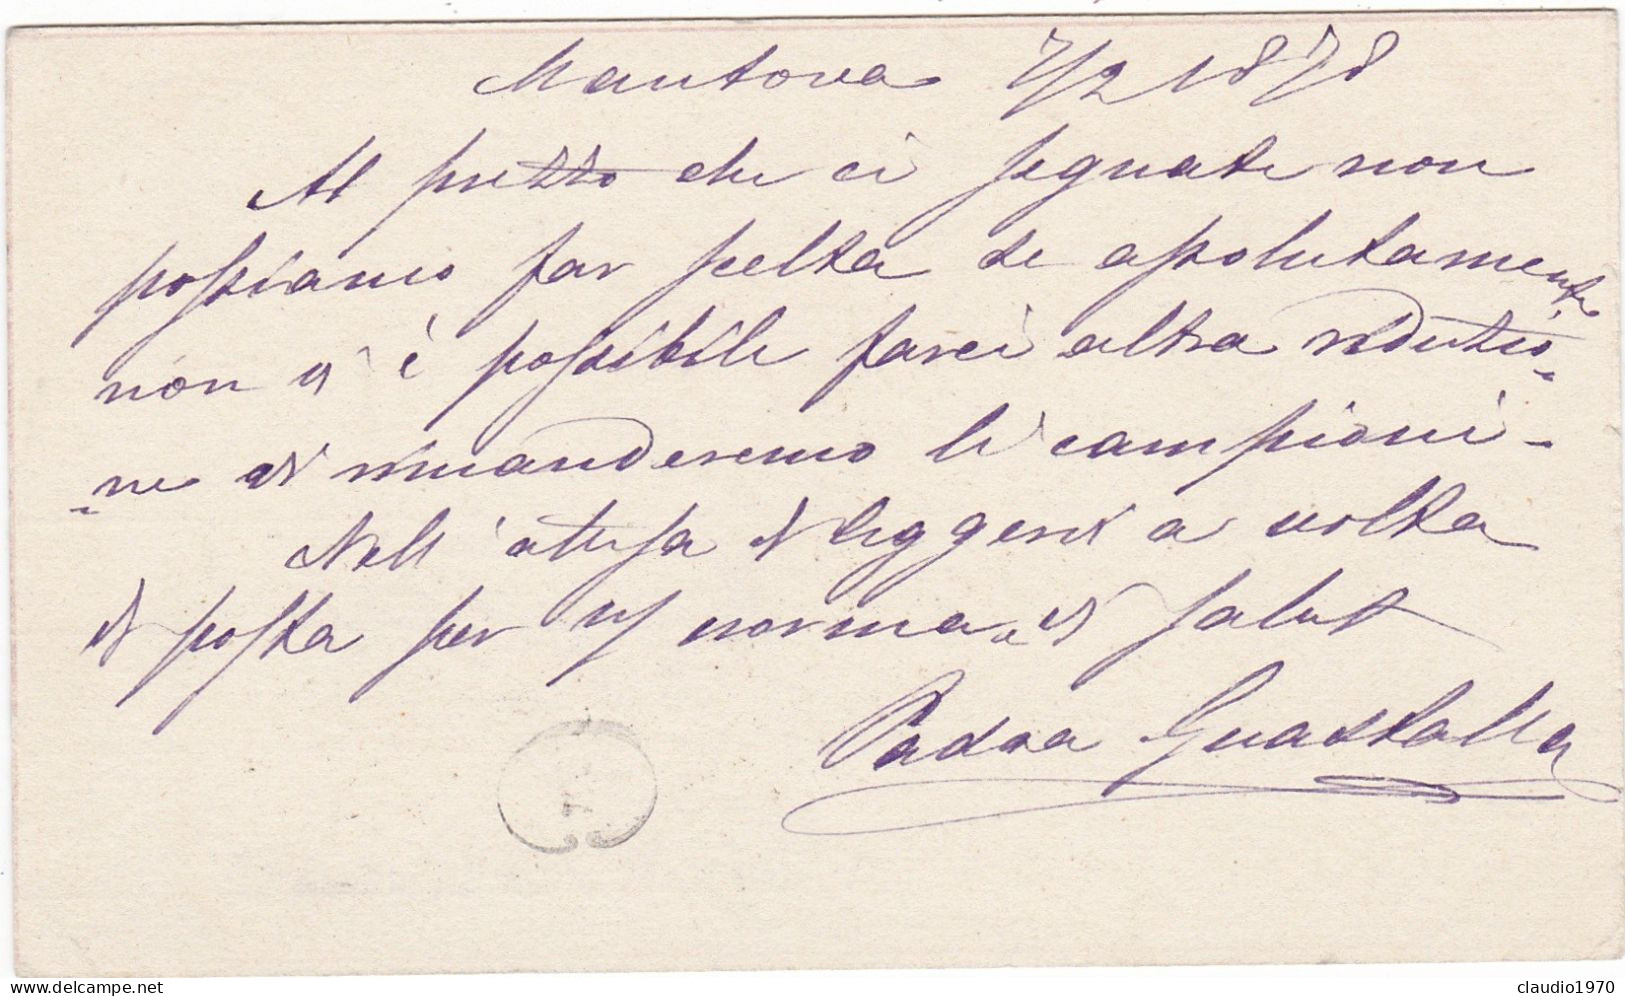 Mantova 7/2 1878
Al prezzo che ci segnate non
possiamo far scelta se assolutamente
non vi è possibile farci altra riduzio=
=ne vi rimanderemo li campioni -
Nell'attesa di leggervi a volta
di posta per Vs norma, vi salut
Padoa Guastalla
claudio1970